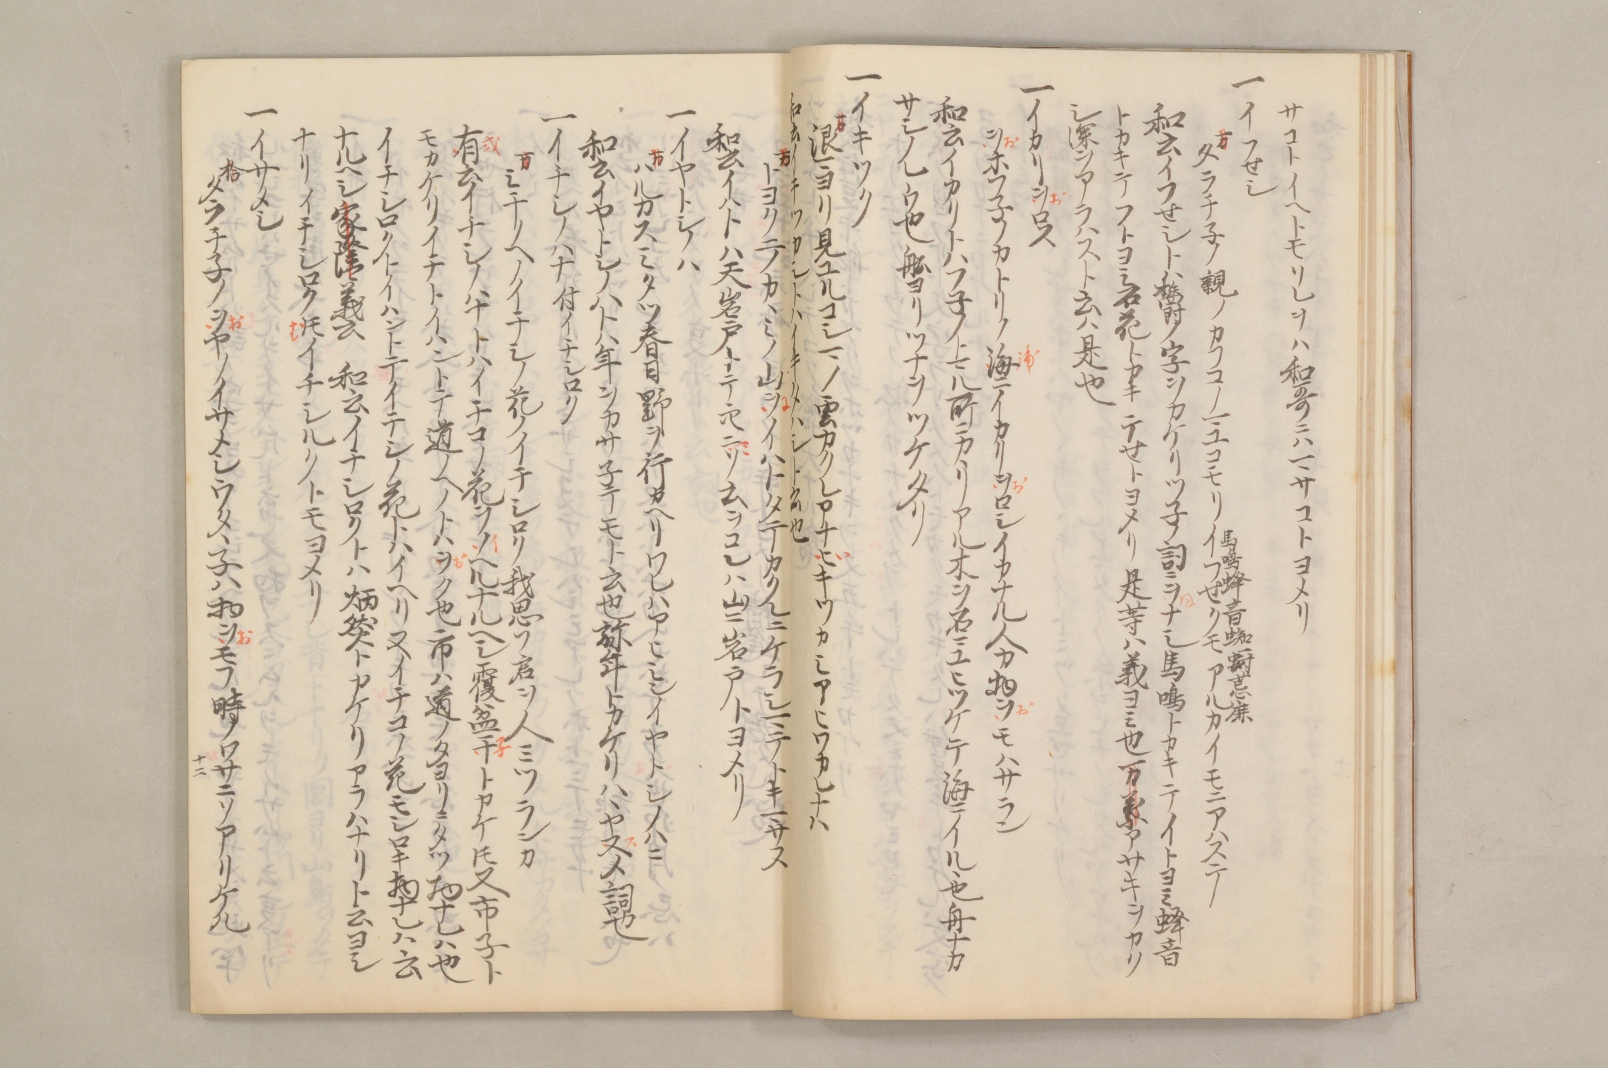 サコトイヘトモリシヲハ和哥ニハマサコトヨメリ
一イフせシ
万タラチ子ノ親ノカフコノマユコモリイフせクモアルカイモニアハステ
馬鳴蜂音蜘蛛荒鹿
和云イフせシトハ欝ノ字ヲカケリツ子ノ詞ヲナシ馬鳴トカキテイトヨミ蜂音
トカキテフトヨミ石花トカキテせトヨメリ是等ハ義ヨミ也万葉アサキヲカリ
シ深ヲアラハスト云ハ是也
一イカリヲロス
ヲホフ子ノカトリノ海ニイカリヲロシイカナル人カ物ヲモハサラン
和云イカリトハフ子ノトモル所ニカリアル木ヲ石ニユヒツケテ海ニイル也舟ナカ
サシノレウ也舩ヨリツナヲツケタリ
一イキツク
万浪マヨリ見ユルコシマノ雲カクレアナイキツカシアヒワカレナハ
和云イキツカシトハイキツカハシト云也
万トヨクニノカヽミノ山ヲイハトタテカクレニケラシマテトキマサス
和云イハトハ天岩戸ナニテ云ニソ云ヲコレハ山ニ岩戸トヨメリ
一イヤトシノハ
万ハルカスミタツ春日野ヲ行カヘリワレハアヒミシイヤトシノハニ
和云イヤトシノハトハ年ヲカサ子テモト云也弥年トカケリハヽヤスメ詞也
一イチシノハナ付イチシロク
万ミチノヘノイチシノ花ノイチシロク我思フ君ヲ人ミツランカ
有云イチシノハナトハイチコノ花ヲノヘルナルヘシ覆盆子トカケ𪜈又市子ト
モカケリイチトイハントテ道ヘノトハヲク也市ハ道ノタヨリニタツ物ナレハ也
イチシロクトイハントテイチシノ花トハイヘリ又イチコノ花モシロキ物ナレハ云
ナルヘシ家隆義云和云イチシロクトハ炳然トカケリアラハナリト云ヨシ
ナリイチシロク𪜈イチシルクトモヨメリ
一イサメシ
拾タラチ子ノヲヤノイサメシウタヽ子ハ物ヲモフ時ノワサニソアリケル
十二